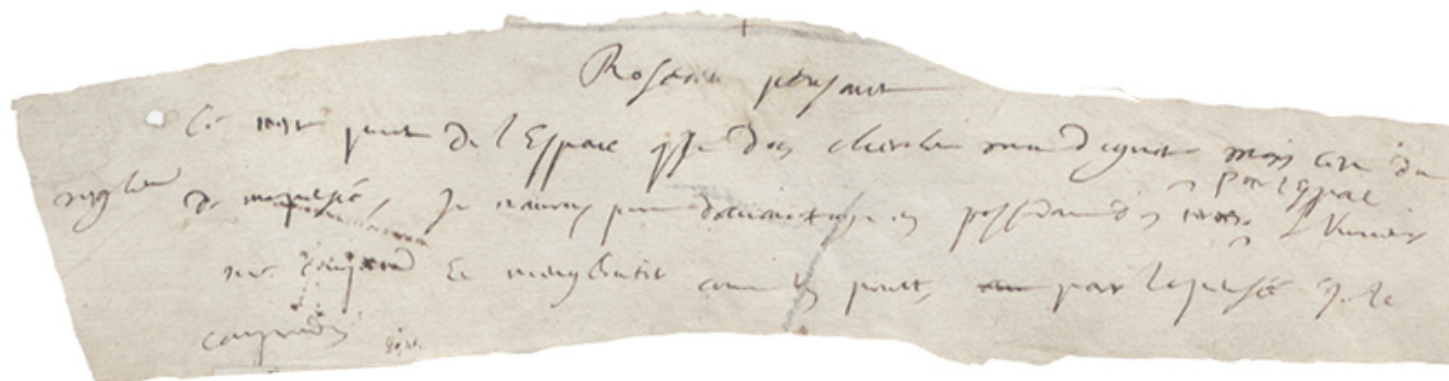 Roseau pensant
Ce nest point de l'Espace q je dois chercher ma dignité mais cest du
Par l'Espace
reglemt de ma pensée, Je nauray point davantage en possedant des terres. l'Univers
me comprend Et mengloutit comme un point, par la pensée je le
comprends